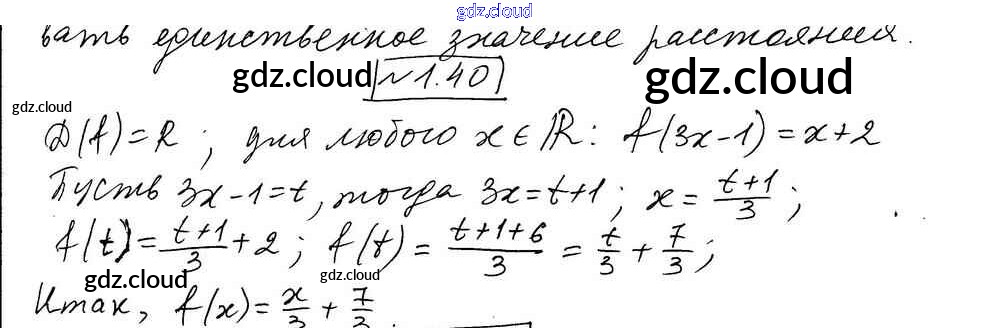 gdz.cloud
вать единственное значение расстояния.
gdz.cloud №1.40 gdz.cloud
gdz.cloud
D(f)=R; для любого x∈R: f(3x-1)=x+2
Пусть 3x-1=t, тогда 3x=t+1; x=\frac{t+1}{3};
f(t)=\frac{t+1}{3}+2; f(t)=\frac{t+1+6}{3}=\frac{t}{3}+\frac{7}{3};
gdz.cloud gdz.cloud
Итак, f(x)=\frac{x}{3}+\frac{7}{3}.